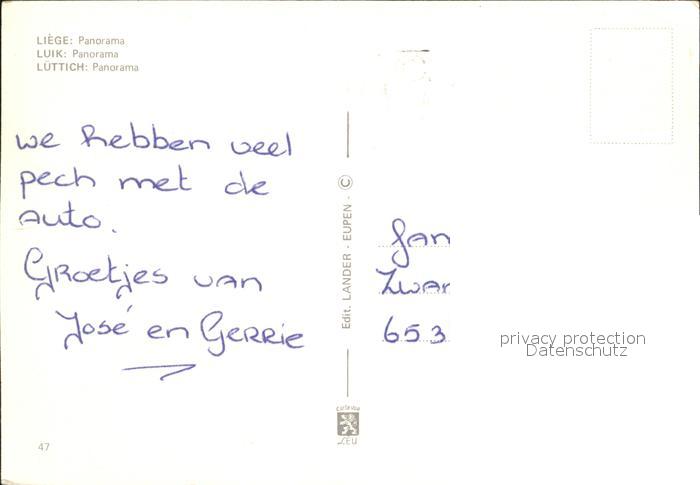 LIÈGE: Panorama
LUIK: Panorama
LÜTTICH: Panorama
we hebben veel
pech met de
auto.
Groetjes van
José en Gerrie
Edit. LANDER - EUPEN - ©
Jan
Zwar
653
privacy protection
Datenschutz
47